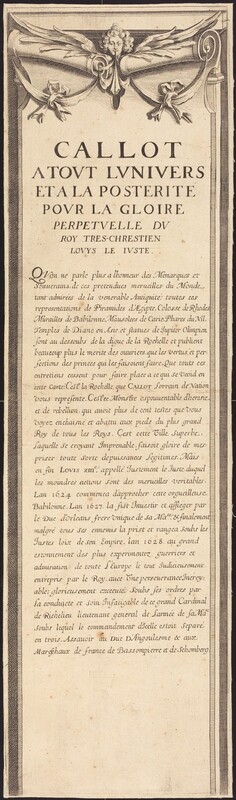 CALLOT
A TOVT LVNIVERS
ET A LA POSTERITE
POVR LA GLOIRE
PERPETVELLE DV
ROY TRES-CHRESTIEN
LOVYS LE IVSTE
Qu'on ne parle plus a lhonneur des Monarques et
Souuerains de ces pretendues merueilles du Monde,
tant admirées de la venerable Antiquité: toutes ces
representations de Piramides d'Ægipte, Colosse de Rhodes
Murailles de Babilonne, Mausolees de Carie, Phare du Nil
Temples de Diane en et statues de Jupiter Olimpien
sont au dessoubs de la digue de la Rochelle et publient
beaucoup plus le merite des ouuriers que les vertus et per
fections des princes qui les faisoient faire. Que toutes ces
entretiens cessent pour faire place a ce qui se vend en
ceste Carte. C'est la Rochelle que CALLOT Lorrain de Nation
vous represente. C'est ce Monstre espouuentable d'heresie,
et de rebellion, qui auec plus de cent testes que vous
voyez enchaisné et abattu aux pieds du plus grand
Roy de tous les Roys. C'est ceste Ville Superbe,
laquelle se croyant Imprenable, faisoit gloire de mes-
priser toute sorte depuissances Legitimes. Mais
en fin LOVIS XIII. appellé Justement le Juste, duquel
les moindres actions sont des merueilles veritables.
Lan 1624. commenca dapprocher cette orgueilleuse
Babilonne. Lan 1627. la fist Jnuestir et assieger par
le Duc d'Orleans frere Vnique de sa Ma.té & finalement
malgré tous ses ennemis la prist et rangea soubs les
Justes loix de son Empire, lan 1628. au grand
estonnement des plus experimentez guerriers et
admiration de toute l'Europe le tout Judicieusement
entrepris par le Roy, auec vne perseuerance Incroy-
able; glorieusement executé Soubs ses ordres par
la conduite et soin Infatigable de ce grand Cardinal
de Richelieu lieutenant general de l'armée de sa Ma.té
soubs lequel le commandement d'icelle estoit Separé
en trois. Assauoir au Duc D'Angoulesme & aux
Mareschaux de france de Bassompierre et de Schomberg.